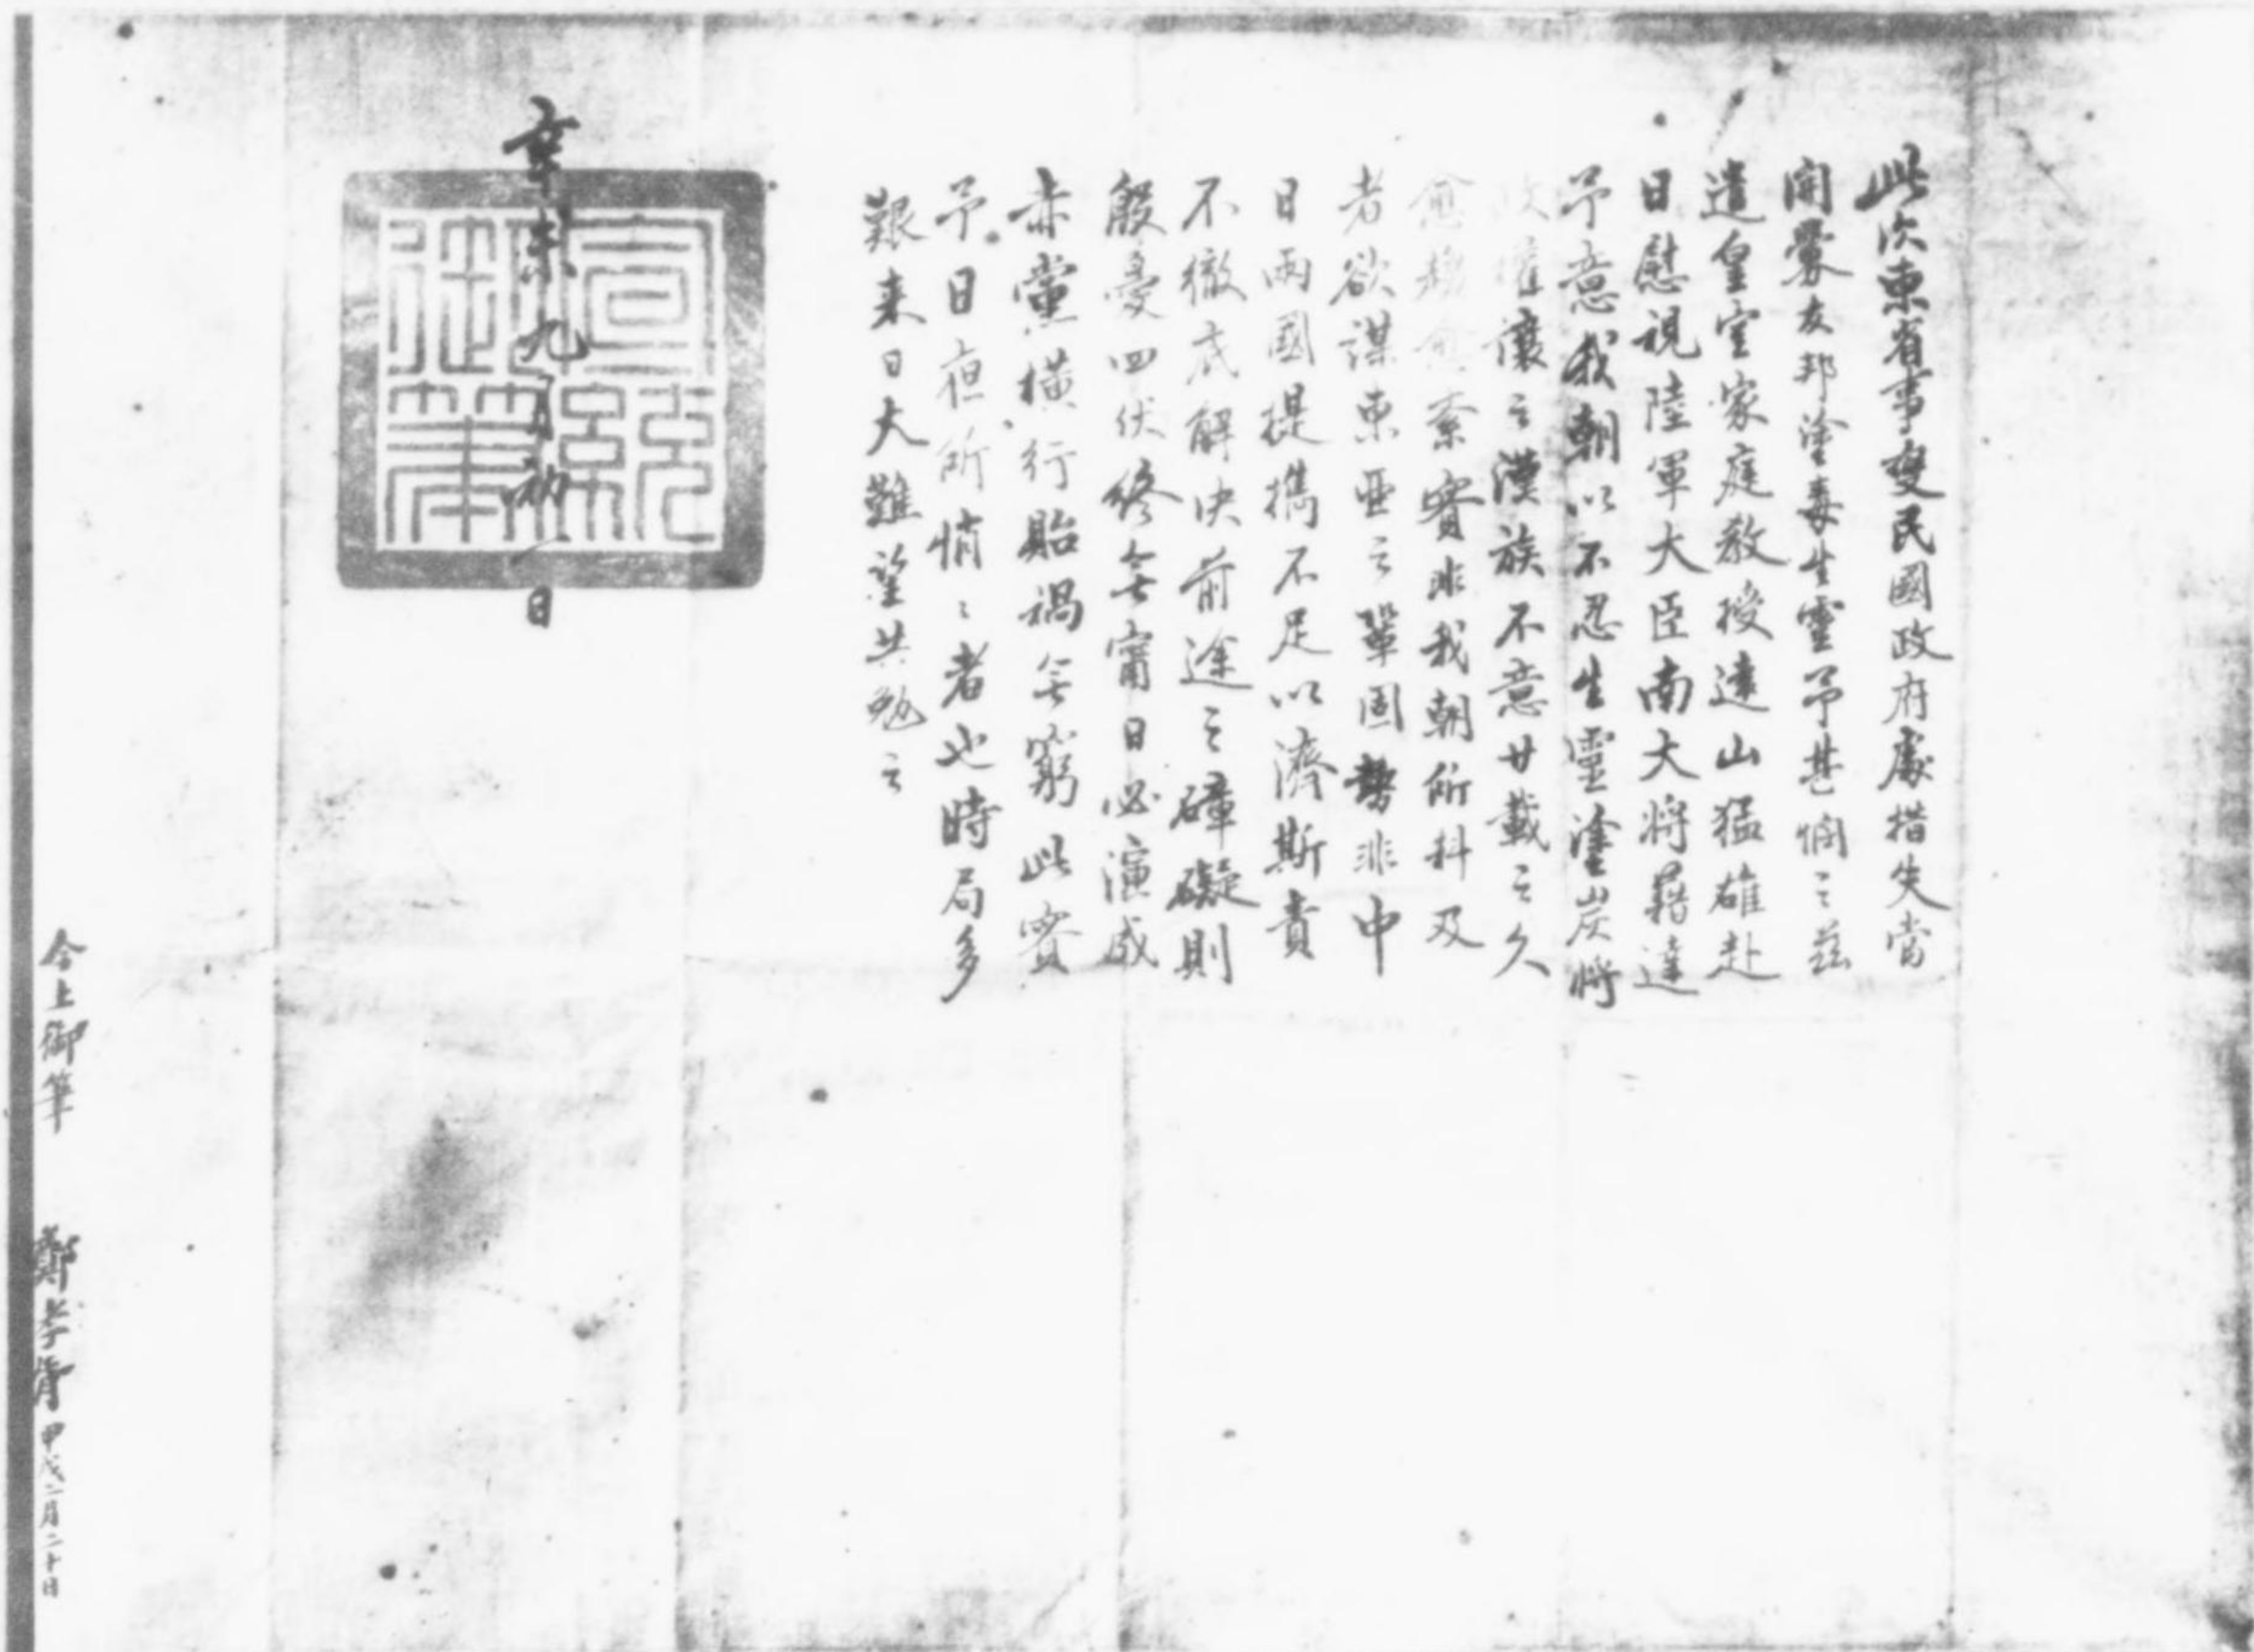 此次東省事變民國政府處措失當
開釁友邦塗毒生靈予甚憫之茲
遣皇室家庭教授遠山猛雄赴
日慰視陸軍大臣南大将藉達
予意我朝以不忍生靈塗炭将
政權讓之漢族不意廿載之久
愈趨愈紊實非我朝所料及
者欲謀東亞之鞏固勢非中
日兩國提携不足以濟斯責
不徹底解决前途之障礙則
殷憂四伏終無甯日必演成
赤黨横行貽禍無窮此實
予日夜所悄〻者也時局多
艱来日大難望共勉之
辛未九月初一日
宣統御筆
今上御筆 鄭孝胥 甲戌二月二十日